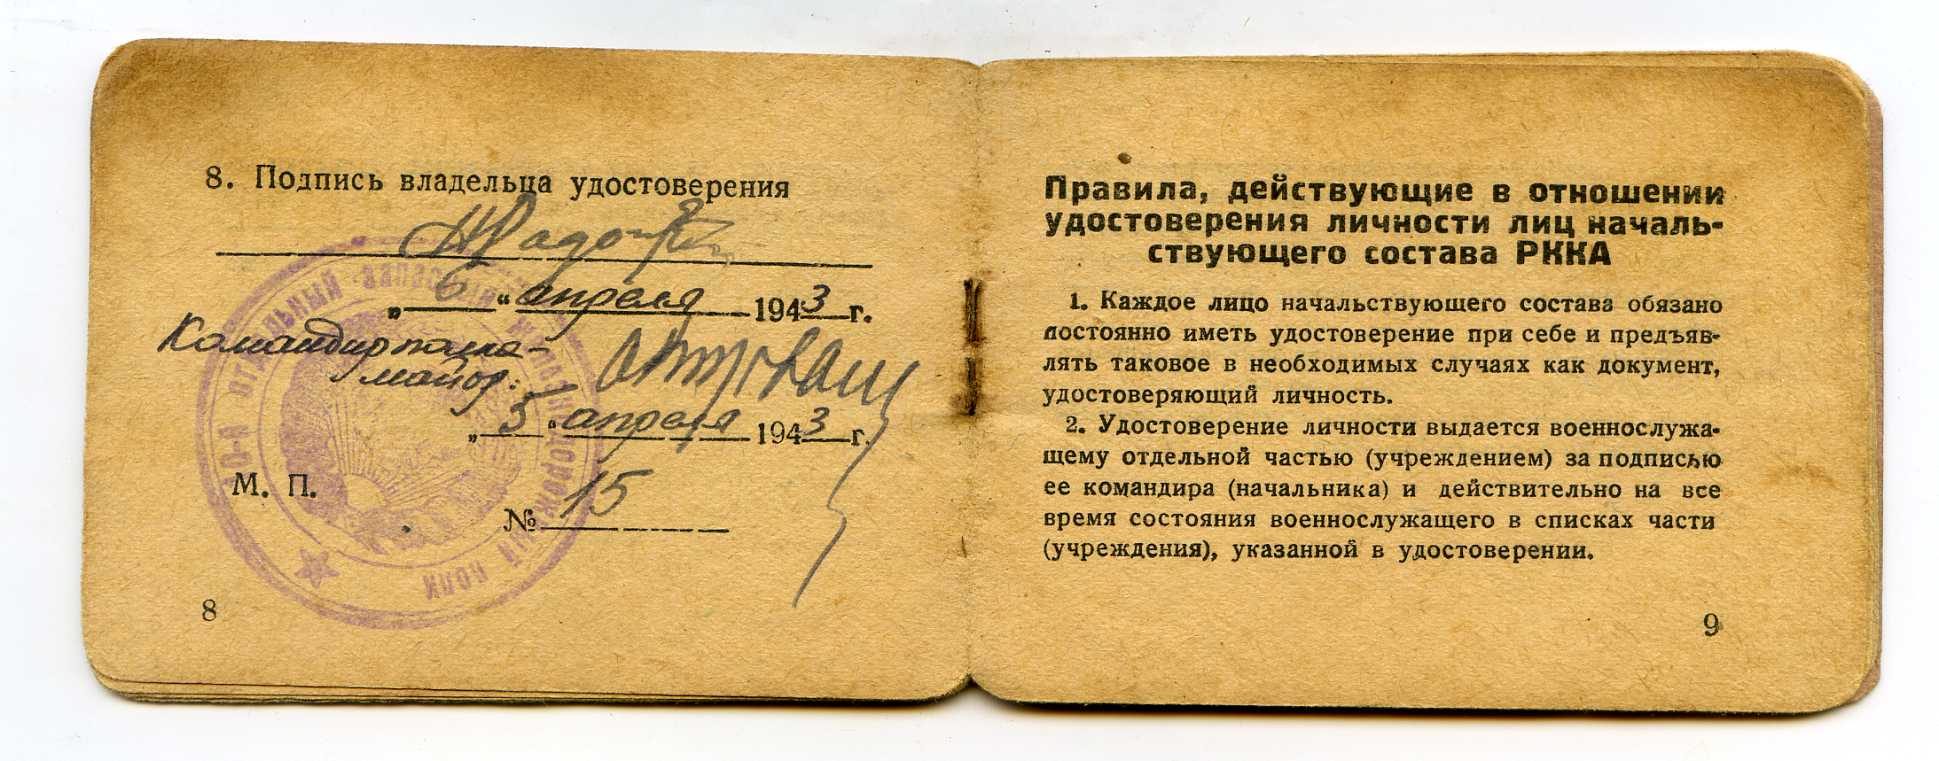 8. Подпись владельца удостоверения
„ 6 “ апреля 1943 г.
Командир полка-
майор:
„ 5 “ апреля 1943 г.
М. П.
№ 15
8
ОТДЕЛЬНЫЙ ЗАПАСНЫЙ ЖЕЛЕЗНОДОРОЖНЫЙ ПОЛК
Правила, действующие в отношении
удостоверения личности лиц началь-
ствующего состава РККА
1. Каждое лицо начальствующего состава обязано
постоянно иметь удостоверение при себе и предъяв-
лять таковое в необходимых случаях как документ,
удостоверяющий личность.
2. Удостоверение личности выдается военнослужа-
щему отдельной частью (учреждением) за подписью
ее командира (начальника) и действительно на все
время состояния военнослужащего в списках части
(учреждения), указанной в удостоверении.
9